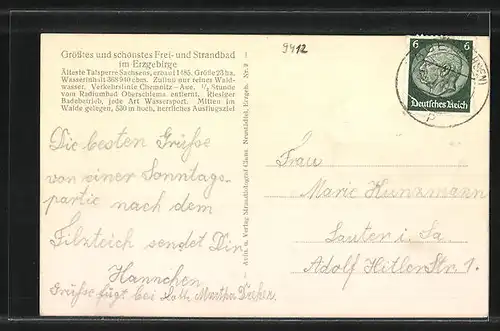 Größtes und schönstes Frei- und Strandbad
im Erzgebirge
Älteste Talsperre Sachsens, erbaut 1485. Größe 23 ha.
Wasserinhalt 368 940 cbm. Zufluß nur reines Wald-
wasser. Verkehrslinie Chemnitz–Aue. ½ Stunde
vom Radiumbad Oberschlema entfernt. Riesiger
Badebetrieb, jede Art Wassersport. Mitten im
Walde gelegen, 530 m hoch, herrliches Ausflugsziel
9412
6 6
Deutsches Reich
Die besten Grüsse
von einer Sonntags-
partie nach dem
Filzteich sendet Dir
Hannchen
Grüsse fügt bei Martha
Verlag Neustädtel, Erzgeb. Nr. 2
Frau
Marie Hunzmann
Lauter i. Sa.
Adolf Hitler Str. 1.